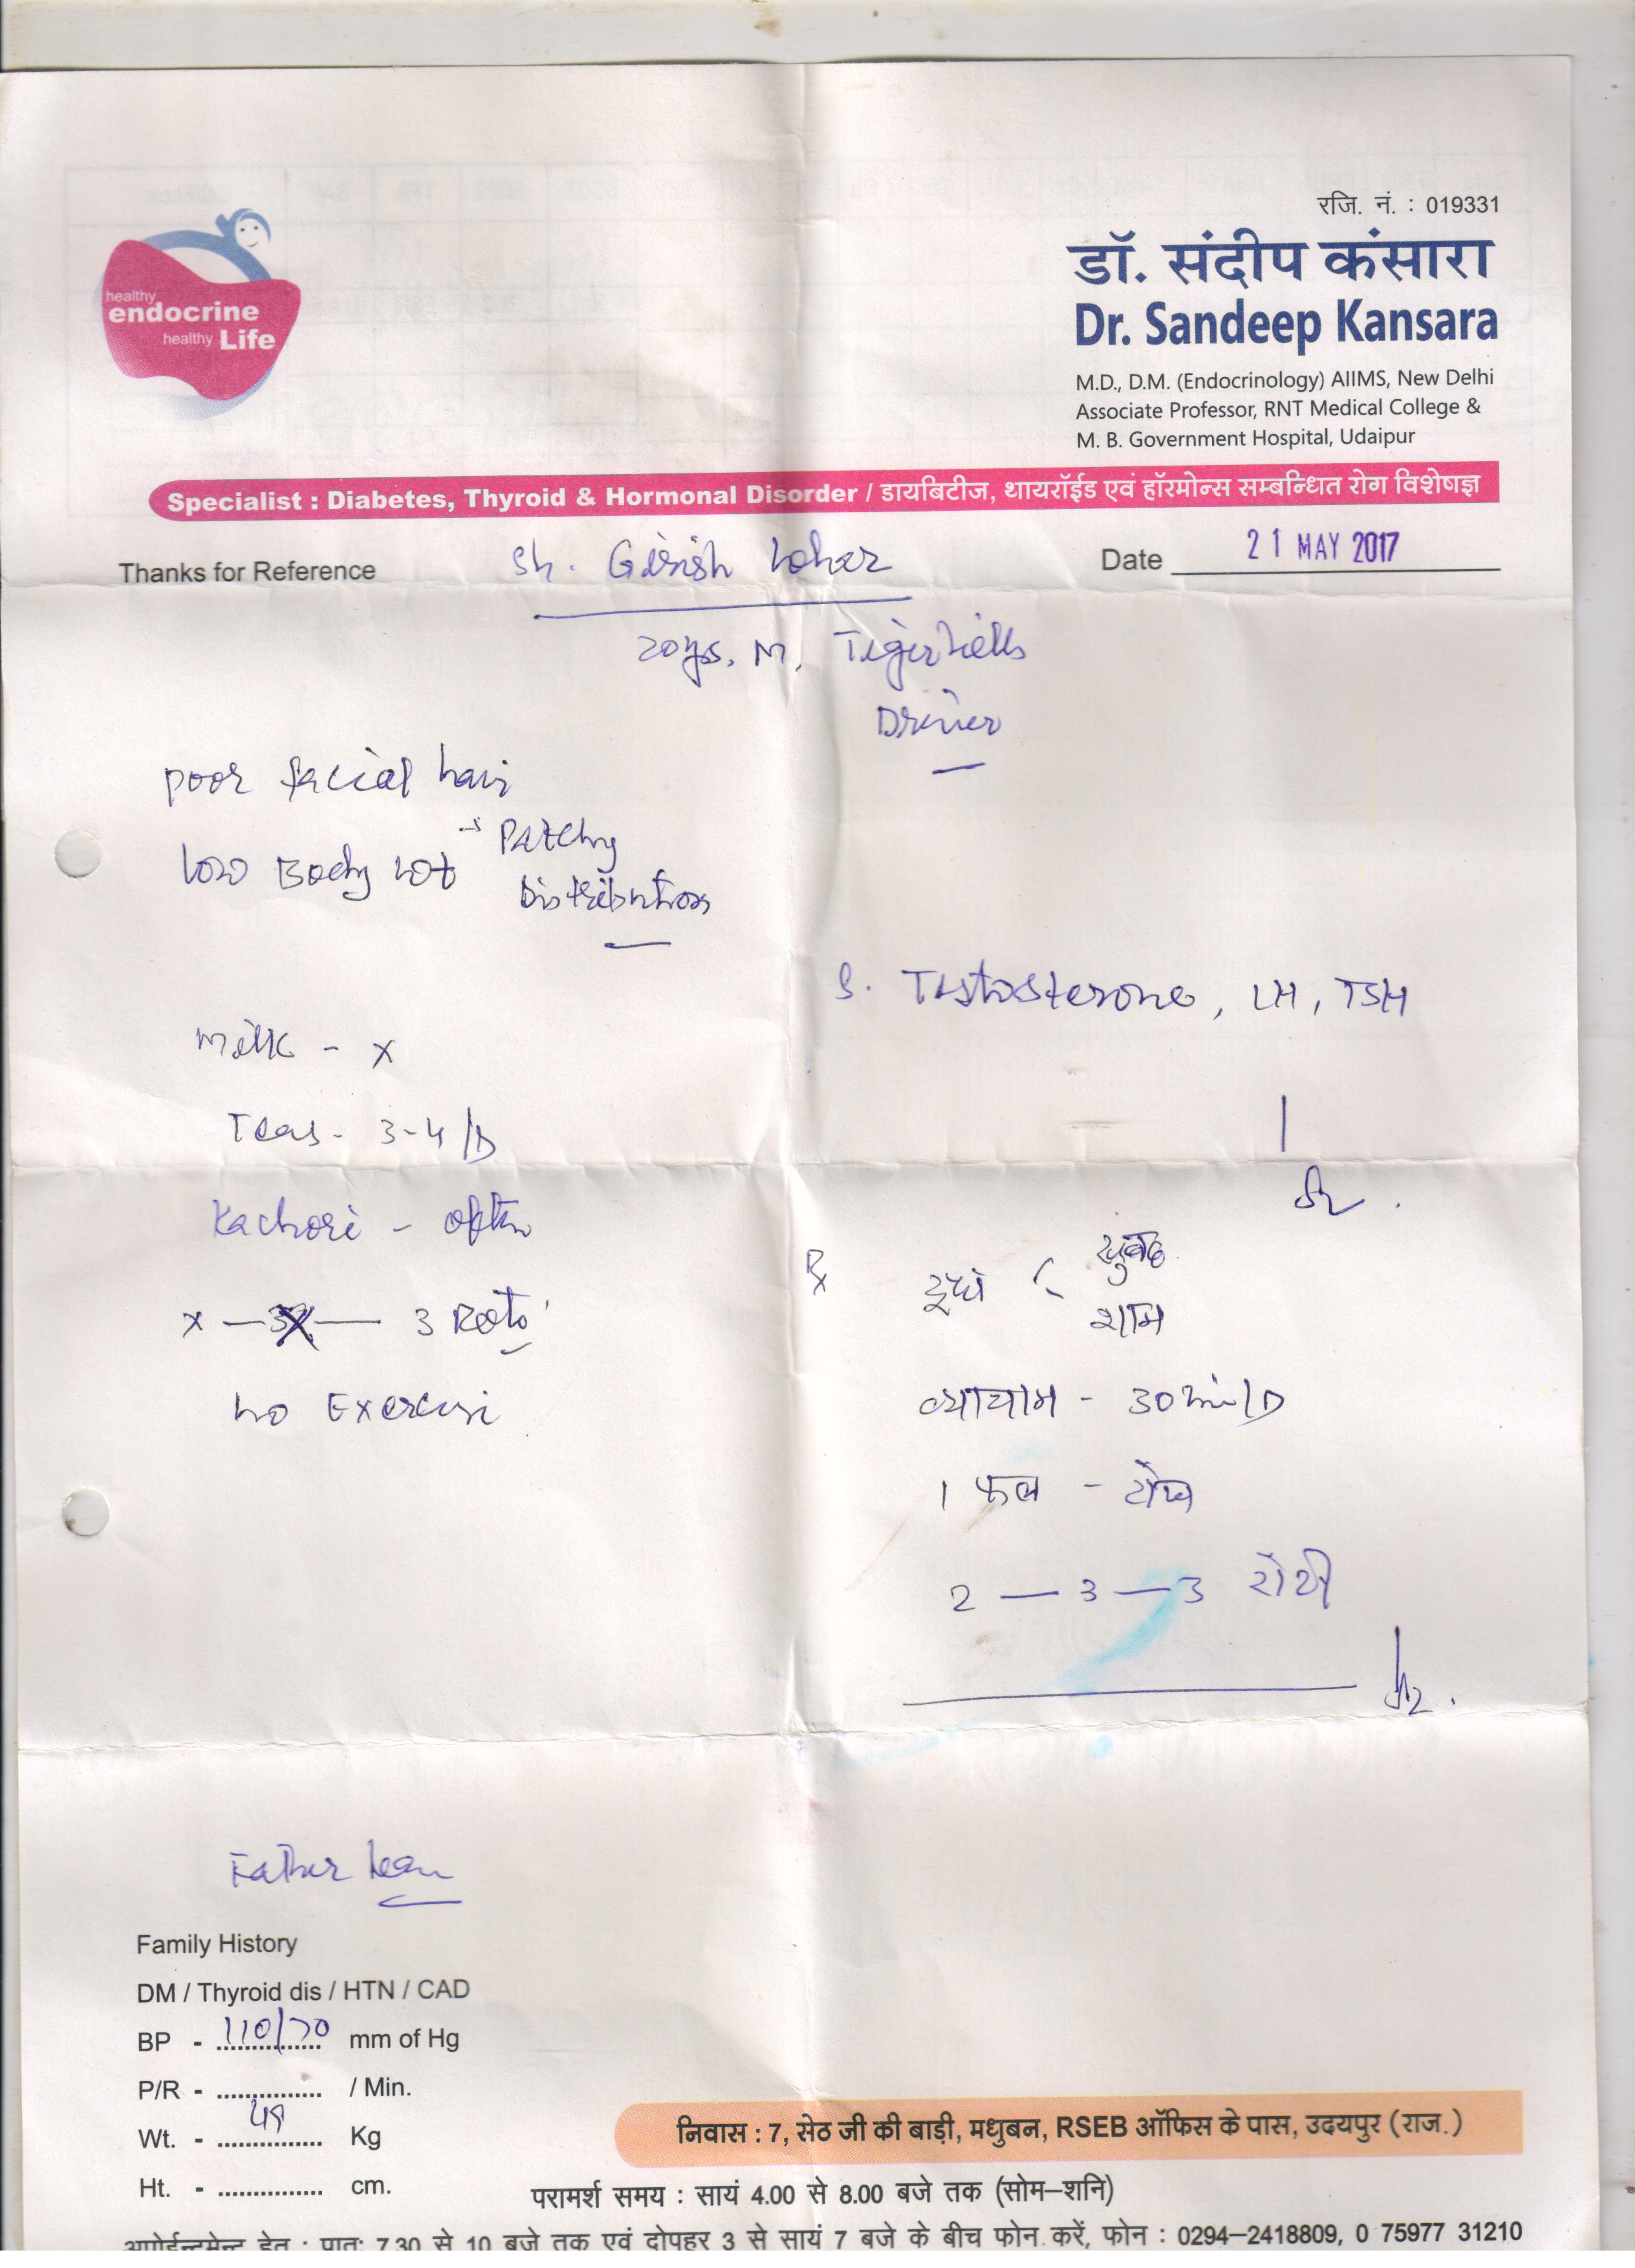 रजि. नं. : 019331
healthy
endocrine
healthy Life
डॉ. संदीप कंसारा
Dr. Sandeep Kansara
M.D., D.M. (Endocrinology) AIIMS, New Delhi
Associate Professor, RNT Medical College &
M. B. Government Hospital, Udaipur
Specialist : Diabetes, Thyroid & Hormonal Disorder / डायबिटीज, थायरॉईड एवं हॉरमोन्स सम्बन्धित रोग विशेषज्ञ
Thanks for Reference Sh. Girish Lohar Date 21 MAY 2017
20 ys. M,
Driver
poor facial hair
low Body wt → Patchy
Distribution
S. Testosterone, LH, TSH
Milk - x
Teas - 3-4/D
Kachori - often
Rx दूध < सुबह
शाम
x — — 3 Roti
व्यायाम - 30 min/D
no Exercise
1 फल - रोज
2 — 3 — 3 रोटी
Father lean
Family History
DM / Thyroid dis / HTN / CAD
BP - 110/70 mm of Hg
P/R - ............... / Min.
Wt. - 49 Kg
Ht. - ............... cm.
निवास : 7, सेठ जी की बाड़ी, मधुबन, RSEB ऑफिस के पास, उदयपुर (राज.)
परामर्श समय : सायं 4.00 से 8.00 बजे तक (सोम–शनि)
अपोईन्टमेन्ट हेतु : प्रातः 7.30 से 10 बजे तक एवं दोपहर 3 से सायं 7 बजे के बीच फोन करें, फोन : 0294–2418809, 0 75977 31210